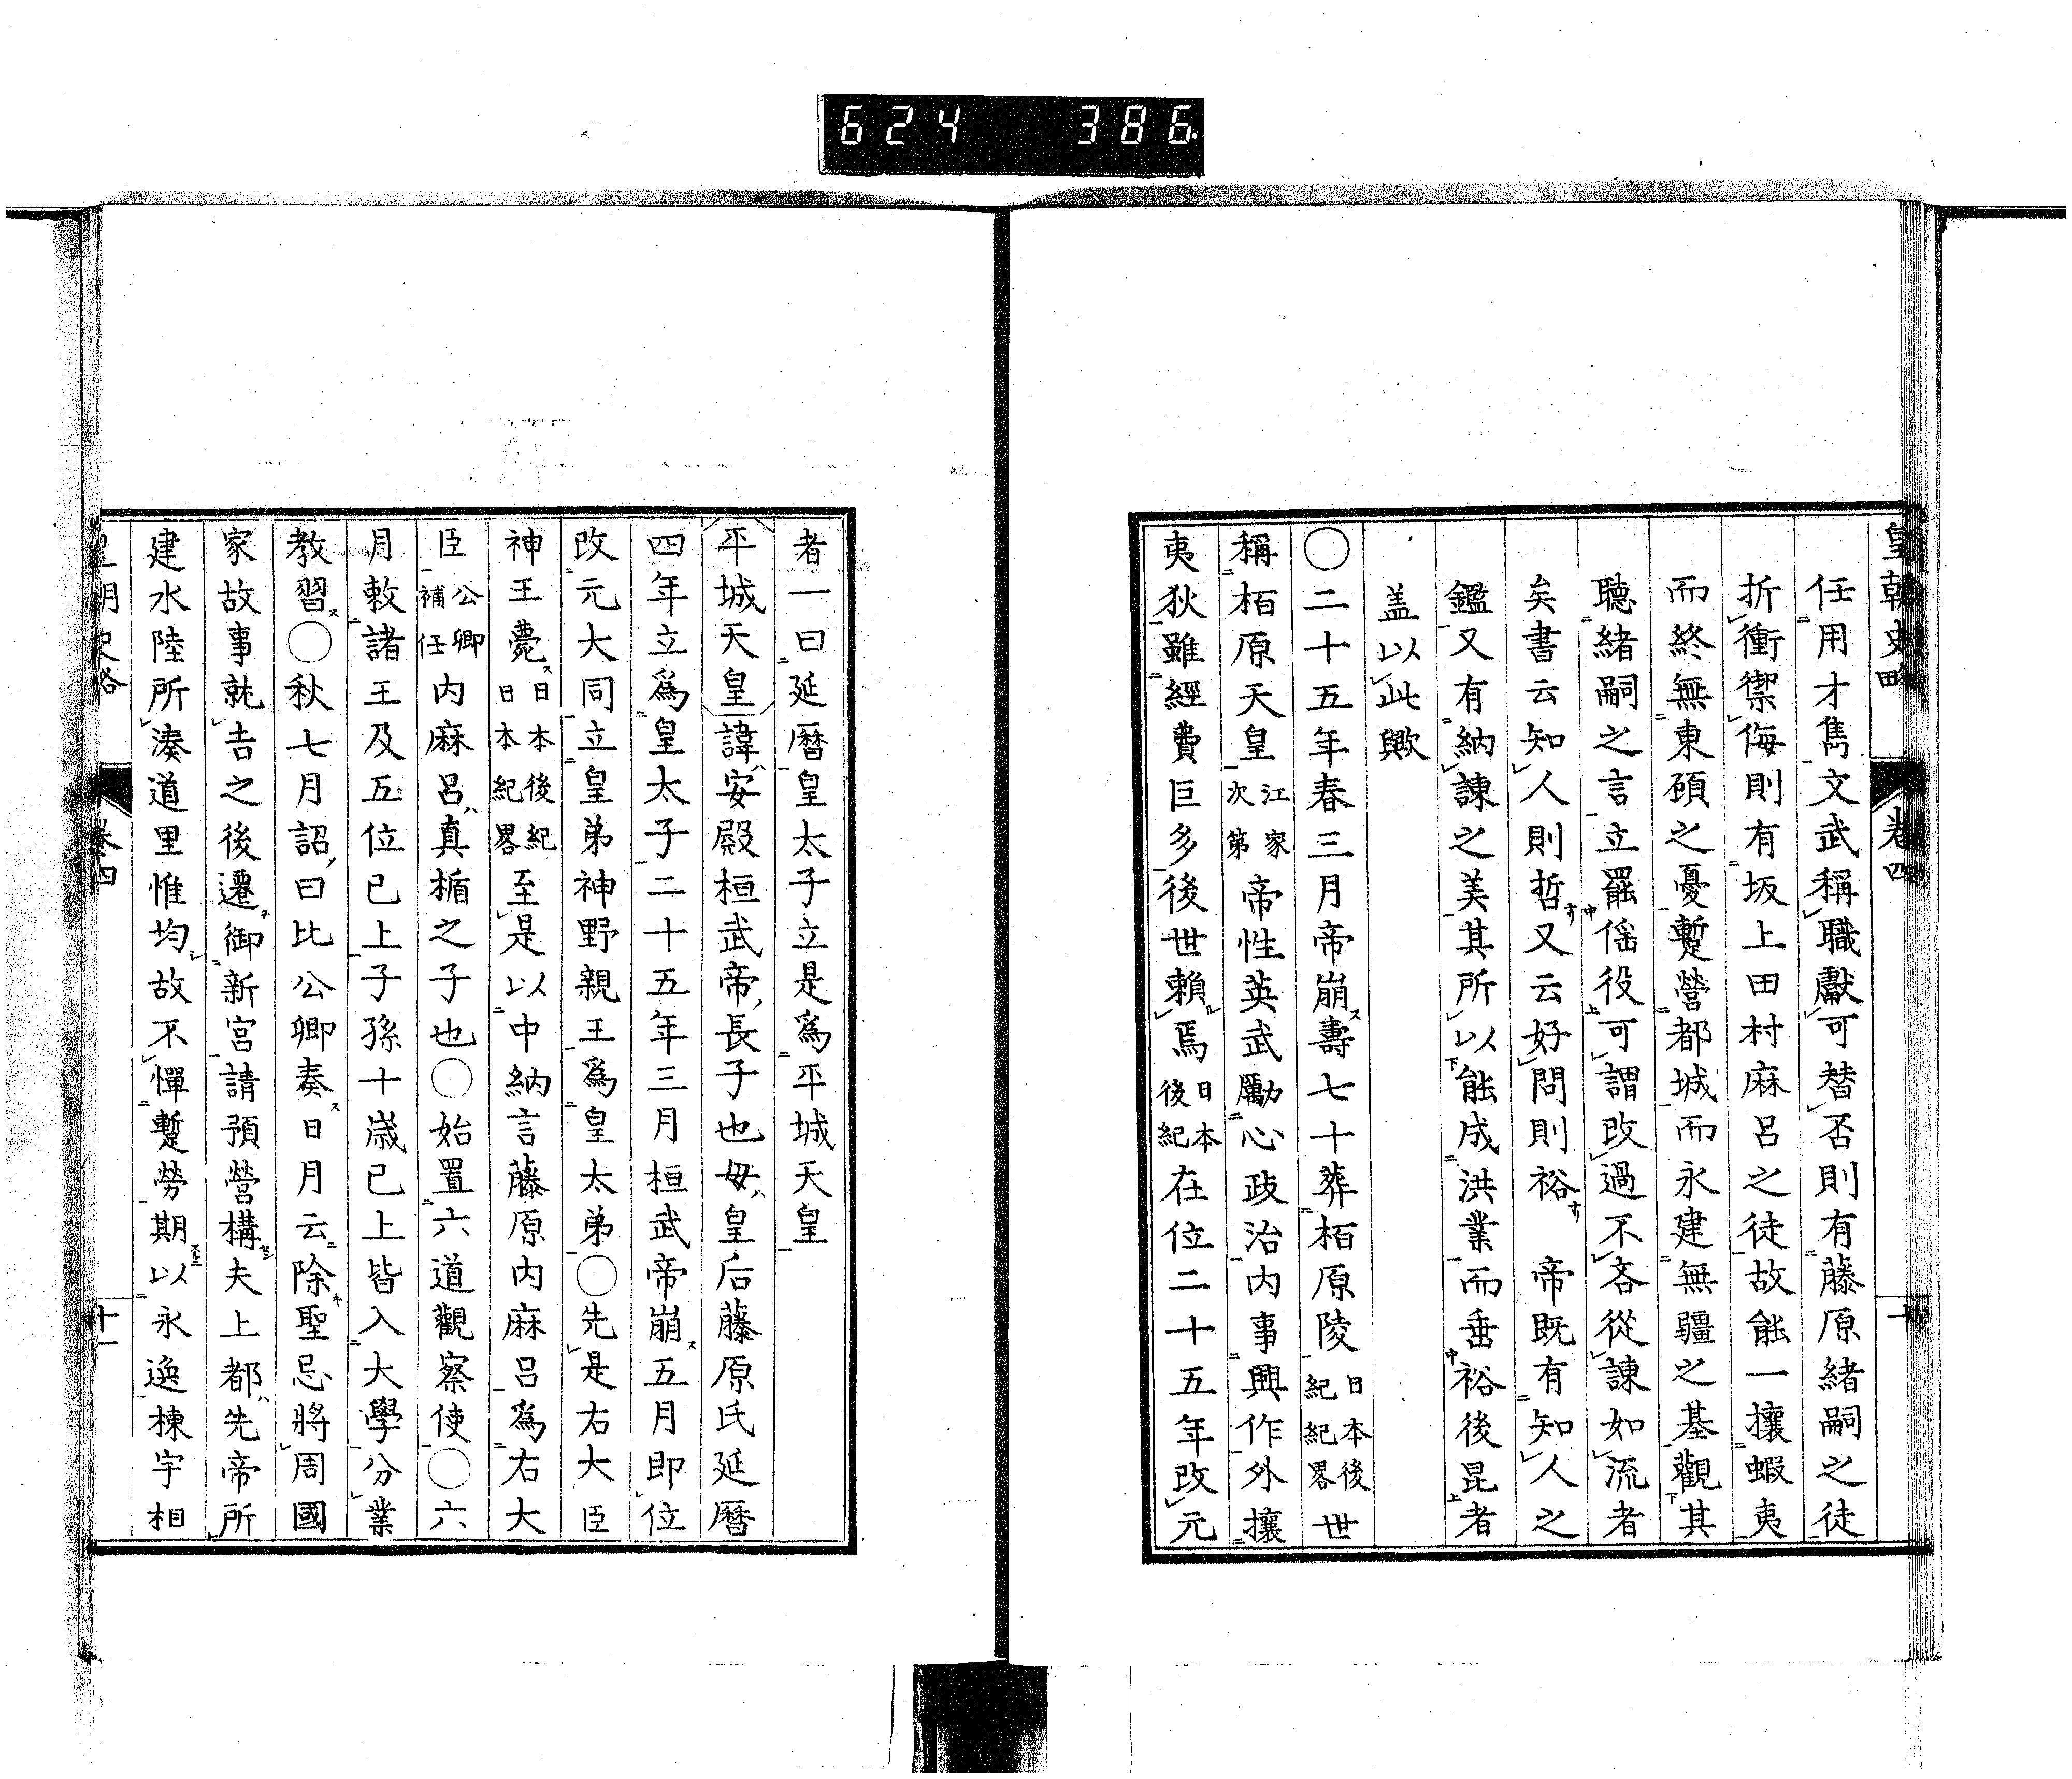 624 386
皇朝史略 卷四 十
任用才雋文武稱職獻可替否則有藤原緒嗣之徒
折衝禦侮則有坂上田村麻呂之徒故能一攘蝦夷
而終無東顧之憂蹔營都城而永建無疆之基觀其
聽緒嗣之言立罷徭役可謂改過不吝從諫如流者
矣書云知人則哲又云好問則裕 帝既有知人之
鑑又有納諫之美其所以能成洪業而垂裕後昆者
盖以此歟
〇二十五年春三月帝崩ス壽七十葬栢原陵日本後紀紀畧世
稱栢原天皇江家次第帝性英武勵心政治内事興作外攘
夷狄雖經費巨多後世賴焉日本後紀在位二十五年改元
者一曰延曆皇太子立是爲平城天皇
平城天皇諱ハ安殿桓武帝ノ長子也母ハ皇后藤原氏延曆
四年立爲皇太子二十五年三月桓武帝崩ス五月即位
改元大同立皇弟神野親王爲皇太弟〇先是右大臣
神王薨ス日本後紀日本紀畧至是以中納言藤原内麻呂爲右大
臣公卿補任内麻呂ハ真楯之子也〇始置六道觀察使〇六
月敕諸王及五位已上子孫十歳已上皆入大學分業
教習ス〇秋七月詔曰比公卿奏ス日月云除聖忌將周國
家故事就吉之後遷御新宮請預營構夫上都ハ先帝所
建水陸所湊道里惟均故不憚蹔勞期以永逸棟宇相
皇朝史略 卷四 十一